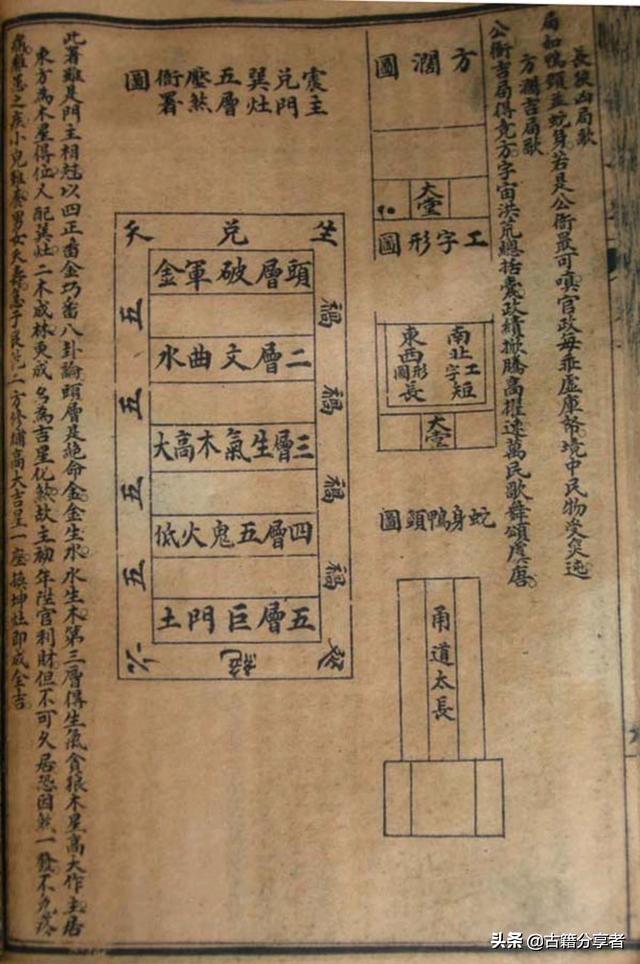 長狹凶局歌
局如鴨頭並蛇身若是公衙最可嗔官政每乖虛庫帑境中民物受災迍
方濶吉局歌
公衙吉局得竟方字宙洪荒總括囊政績掀騰高擢速萬民歌舞頌虞唐
方濶圖
大堂
工字形圖
南北短
工字形圖
東西長
大堂
蛇身鴨頭圖
甬道太長
震主
兌門
巽灶
五層
壓煞
衙署
圖
生兌天
頭層破軍金
二層文曲水
三層生氣木高大
四層五鬼火低
五層巨門土
禍
禍
禍
禍
五
五
五
五
延絕六
此署雖是門主相尅以四正番金巧番八卦論頭層是絶命金金生水水生木第三層得生氣貪狼木星高大作主居
東方為木星得位又配巽灶二木成林更成名為吉星化煞故主初年陞官利財但不可久居恐因煞一發不免疼